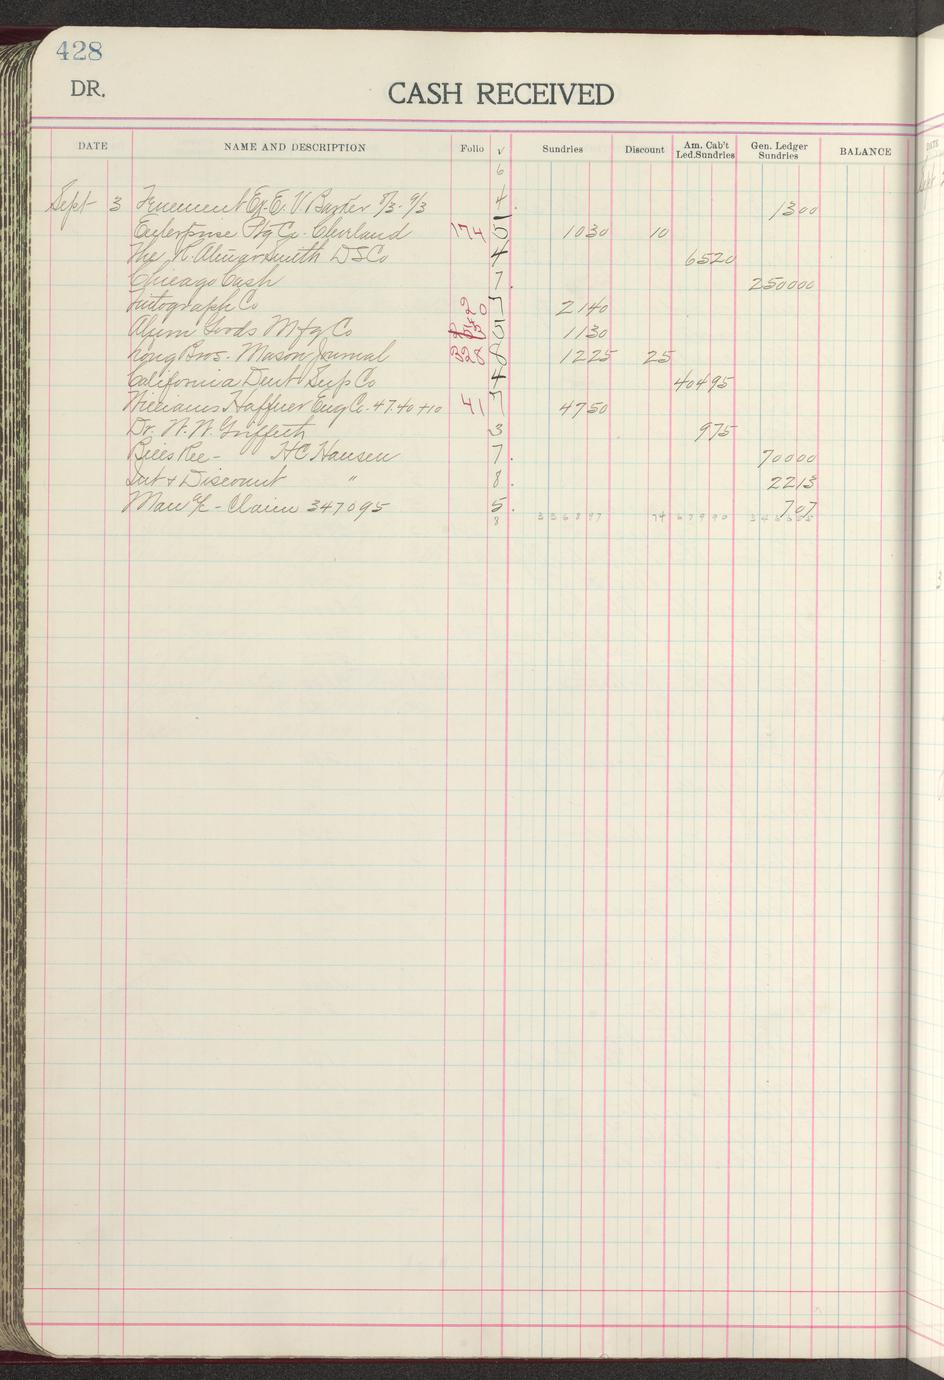 428
DR.
CASH RECEIVED
DATE NAME AND DESCRIPTION Folio √ Sundries Discount Am. Cab't Led. Sundries Gen. Ledger Sundries BALANCE
6
Sept 3 Tenement Ex. E. V. Baxter 8/3 - 9/3 4. 1300
Enterprise Ptg Co. Cleveland 174 5 1030 10
The R. Smith DS Co 4 6520
Chicago Cash 7. 250000
Autograph Co 20 7 2140
Alum Goods Mfg Co 5 1130
Long Bros. Mason Journal 328 8 1225 25
California Dent Sup Co 4 40495
Williams Haffner Eng Co. 47.40 + 10 41 7 4750
Dr. W. W. Griffeth 3 975
Bills Rec - H C Hansen 7. 70000
Int & Discount " 8. 2213
Man a/c - Claim 347095 5. 707
8 336897 74 67990